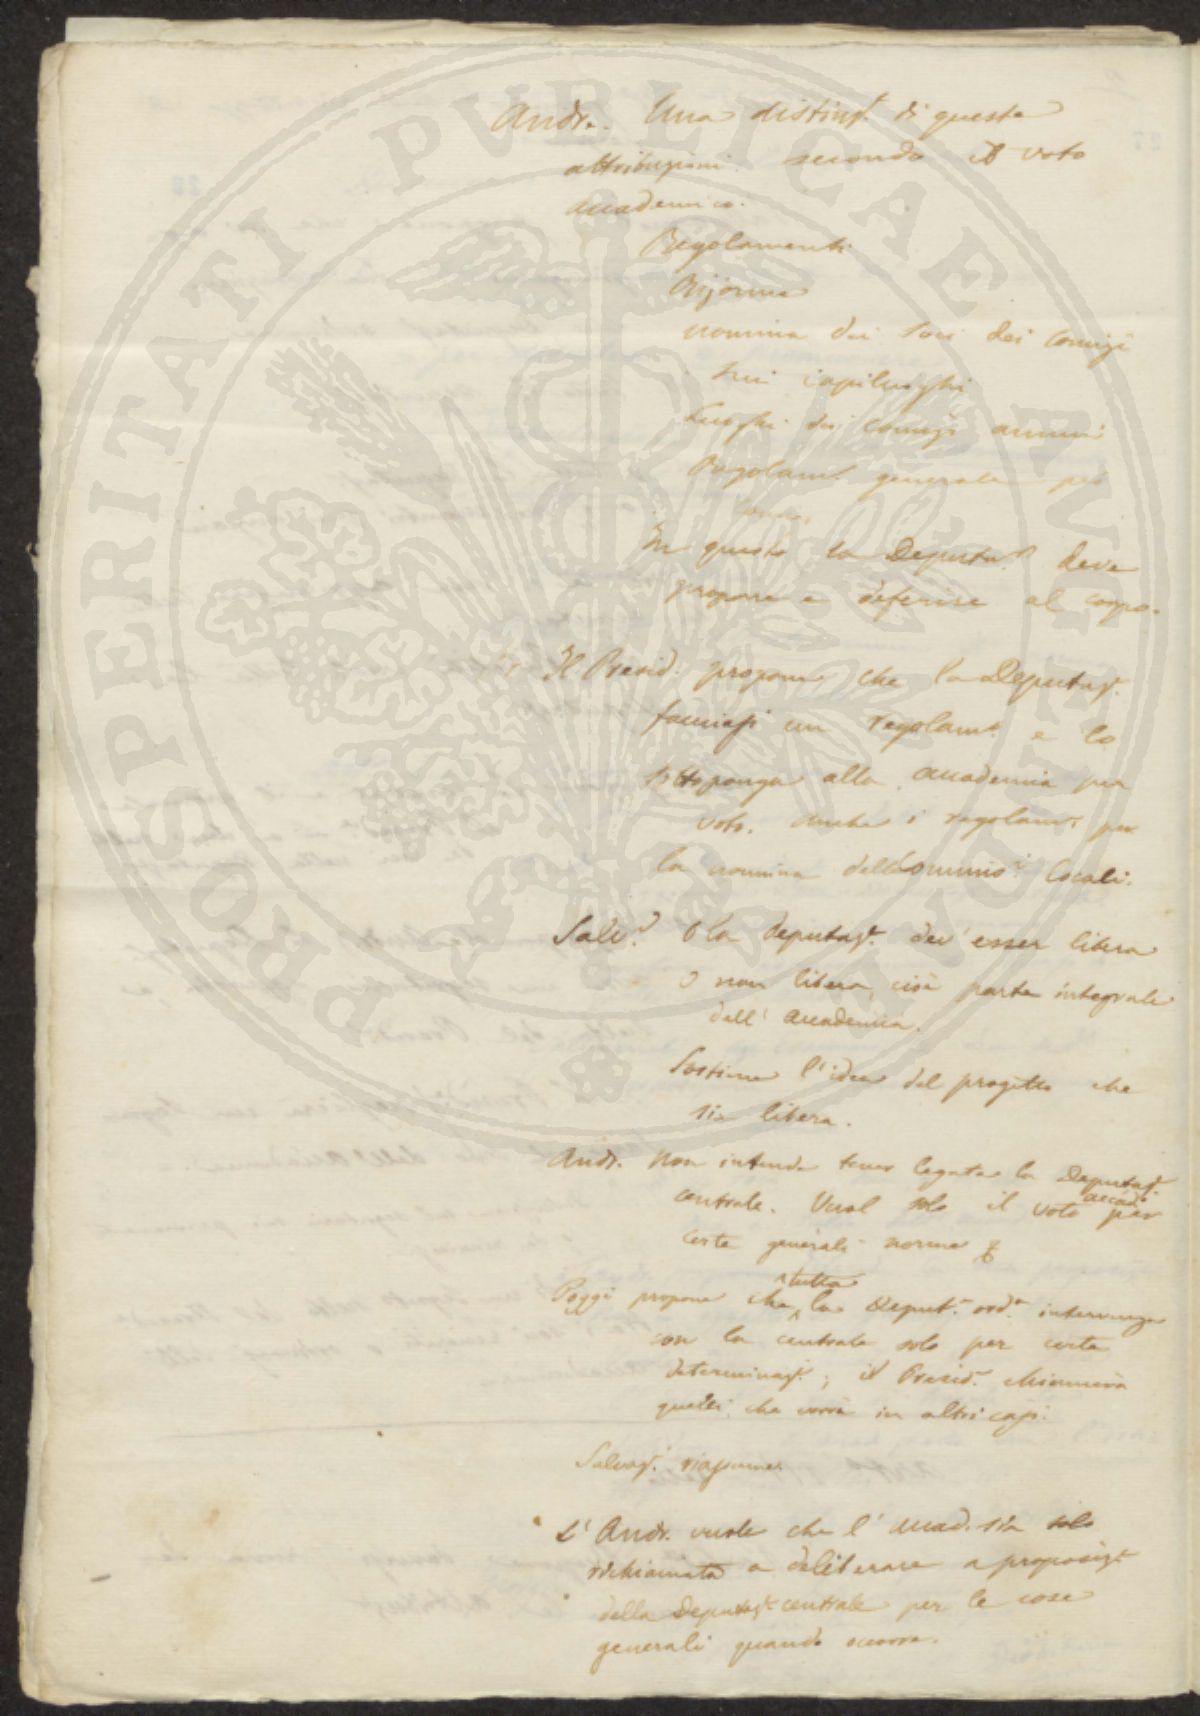 Andr. Una distinz.e di queste
attribuzioni secondo il voto
accademico.
Regolamenti
Riforme
nomina dei soci dei comizi
sui capiluoghi
Luoghi dei comizi annui
Regolam.i generale per
In questo la Deputaz.e deve
proporre e deferire al corpo.
Il Presid. propone che la Deputaz.e
facciasi un regolam.o e lo
sottoponga alla accademia per
voto. Anche i regolam.i per
la nomina delle Commis.i locali.
Salv.i O la deputaz.e dev' esser libera
o non libera, cioè parte integrale
dell' accademia.
Sostiene l' idea del progetto che
sia libera.
Andr. Non intende tener legata la Deputaz.e
centrale. Vuol solo il voto accad.o per
certe generali norme
Poggi propone che tutta la Deput.e ord.a intervenga
con la centrale solo per certe
determinaz.i; il Presid.e chiamerà
quelli che vorrà in altri casi.
Salvag.i riassume.
L' Andr. vuole che l' accad. sia solo
richiamata a deliberare a proposiz.e
della Deputaz.e centrale per le cose
generali quando occorra.
PROSPERITATI PVBLICAE AVGENDAE